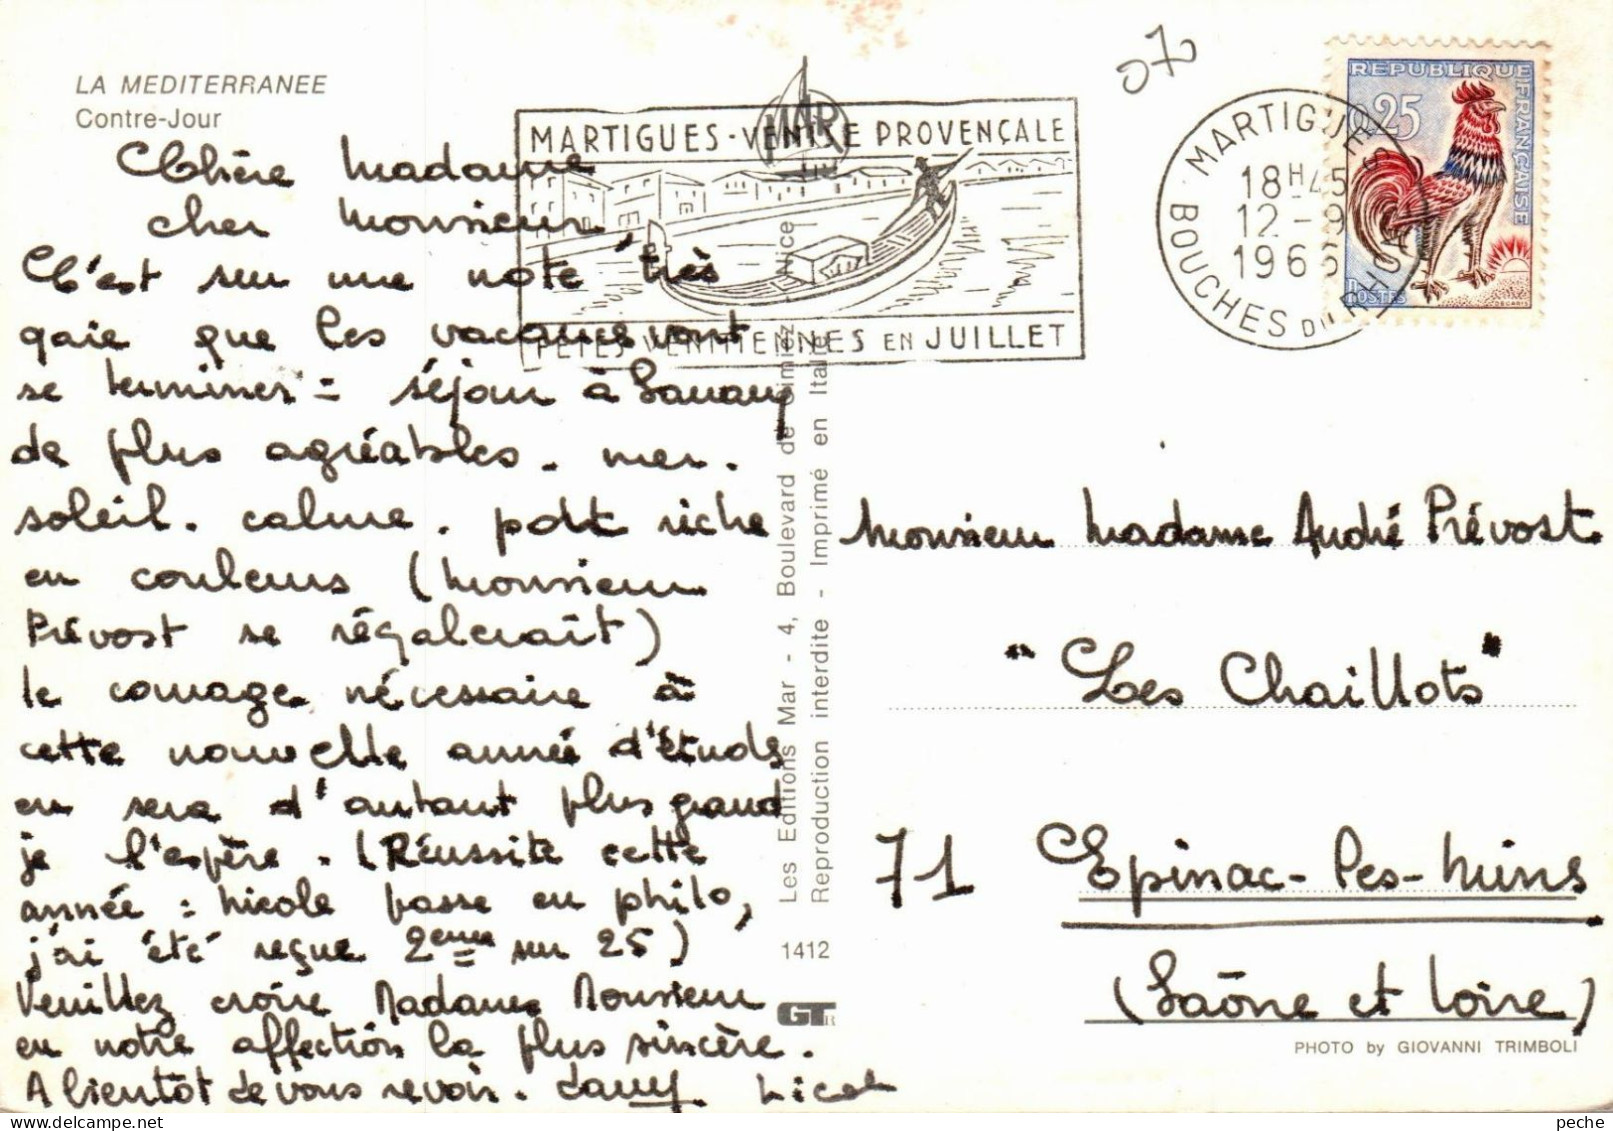 LA MEDITERRANEE
Contre-Jour
Chère Madame
cher Monsieur,
C'est sur une note très
gaie que les vacances vont
se terminer = séjour à Sanary
de plus agréables - mer -
soleil - calme - port riche
en couleurs (Monsieur
Prévost se régalerait)
le courage nécessaire à
cette nouvelle année d'études
en sera d'autant plus grand
je l'espère. (Réussite cette
année : Nicole passe en philo,
j'ai été reçue 2eme sur 25)
Veuillez croire Madame Monsieur
en notre affection la plus sincère.
A bientôt de vous revoir. Dany Nicole
MARTIGUES - VENISE PROVENÇALE
FETES VENITIENNES EN JUILLET
MAR
Les Editions Mar - 4, Boulevard de Cimiez Nice
Reproduction interdite - Imprimé en Italie
1412
GT
MARTIGUES
18H45
12-9
1966
BOUCHES DU RHONE
REPUBLIQUE FRANÇAISE
0,25
POSTES
DECARIS
Monsieur Madame André Prévost
"Les Chaillots"
71 Epinac-les-Mines
(Saône et Loire)
PHOTO by GIOVANNI TRIMBOLI
peche